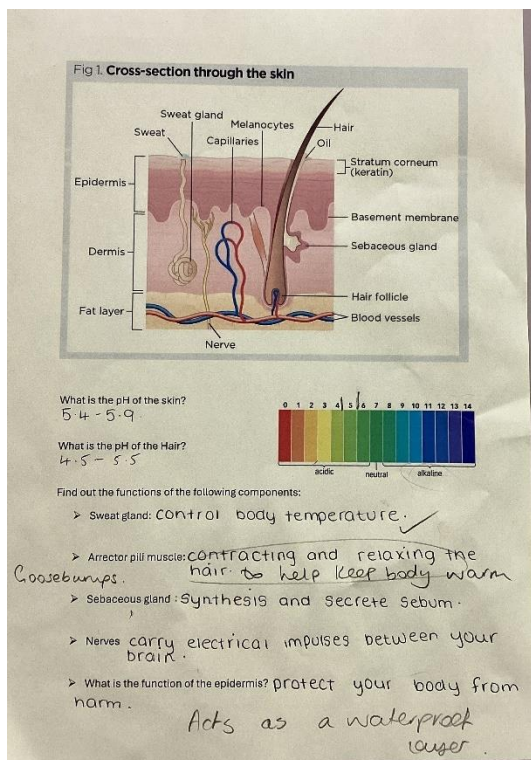 Fig 1. Cross-section through the skin
Sweat gland
Melanocytes
Sweat
Capillaries
Hair
Oil
Stratum corneum
(keratin)
Epidermis
Basement membrane
Dermis
Sebaceous gland
Hair follicle
Fat layer
Blood vessels
Nerve
What is the pH of the skin?
5.4 - 5.9
0 1 2 3 4 5 6 7 8 9 10 11 12 13 14
What is the pH of the Hair?
4.5 - 5.5
acidic neutral alkaline
Find out the functions of the following components:
➤ Sweat gland: control body temperature.
➤ Arrector pili muscle: contracting and relaxing the
Goosebumps. hair. to help keep body warm
➤ Sebaceous gland: Synthesis and secrete sebum.
➤ Nerves carry electrical impulses between your
brain.
➤ What is the function of the epidermis? protect your body from
harm.
Acts as a waterproof
layer.